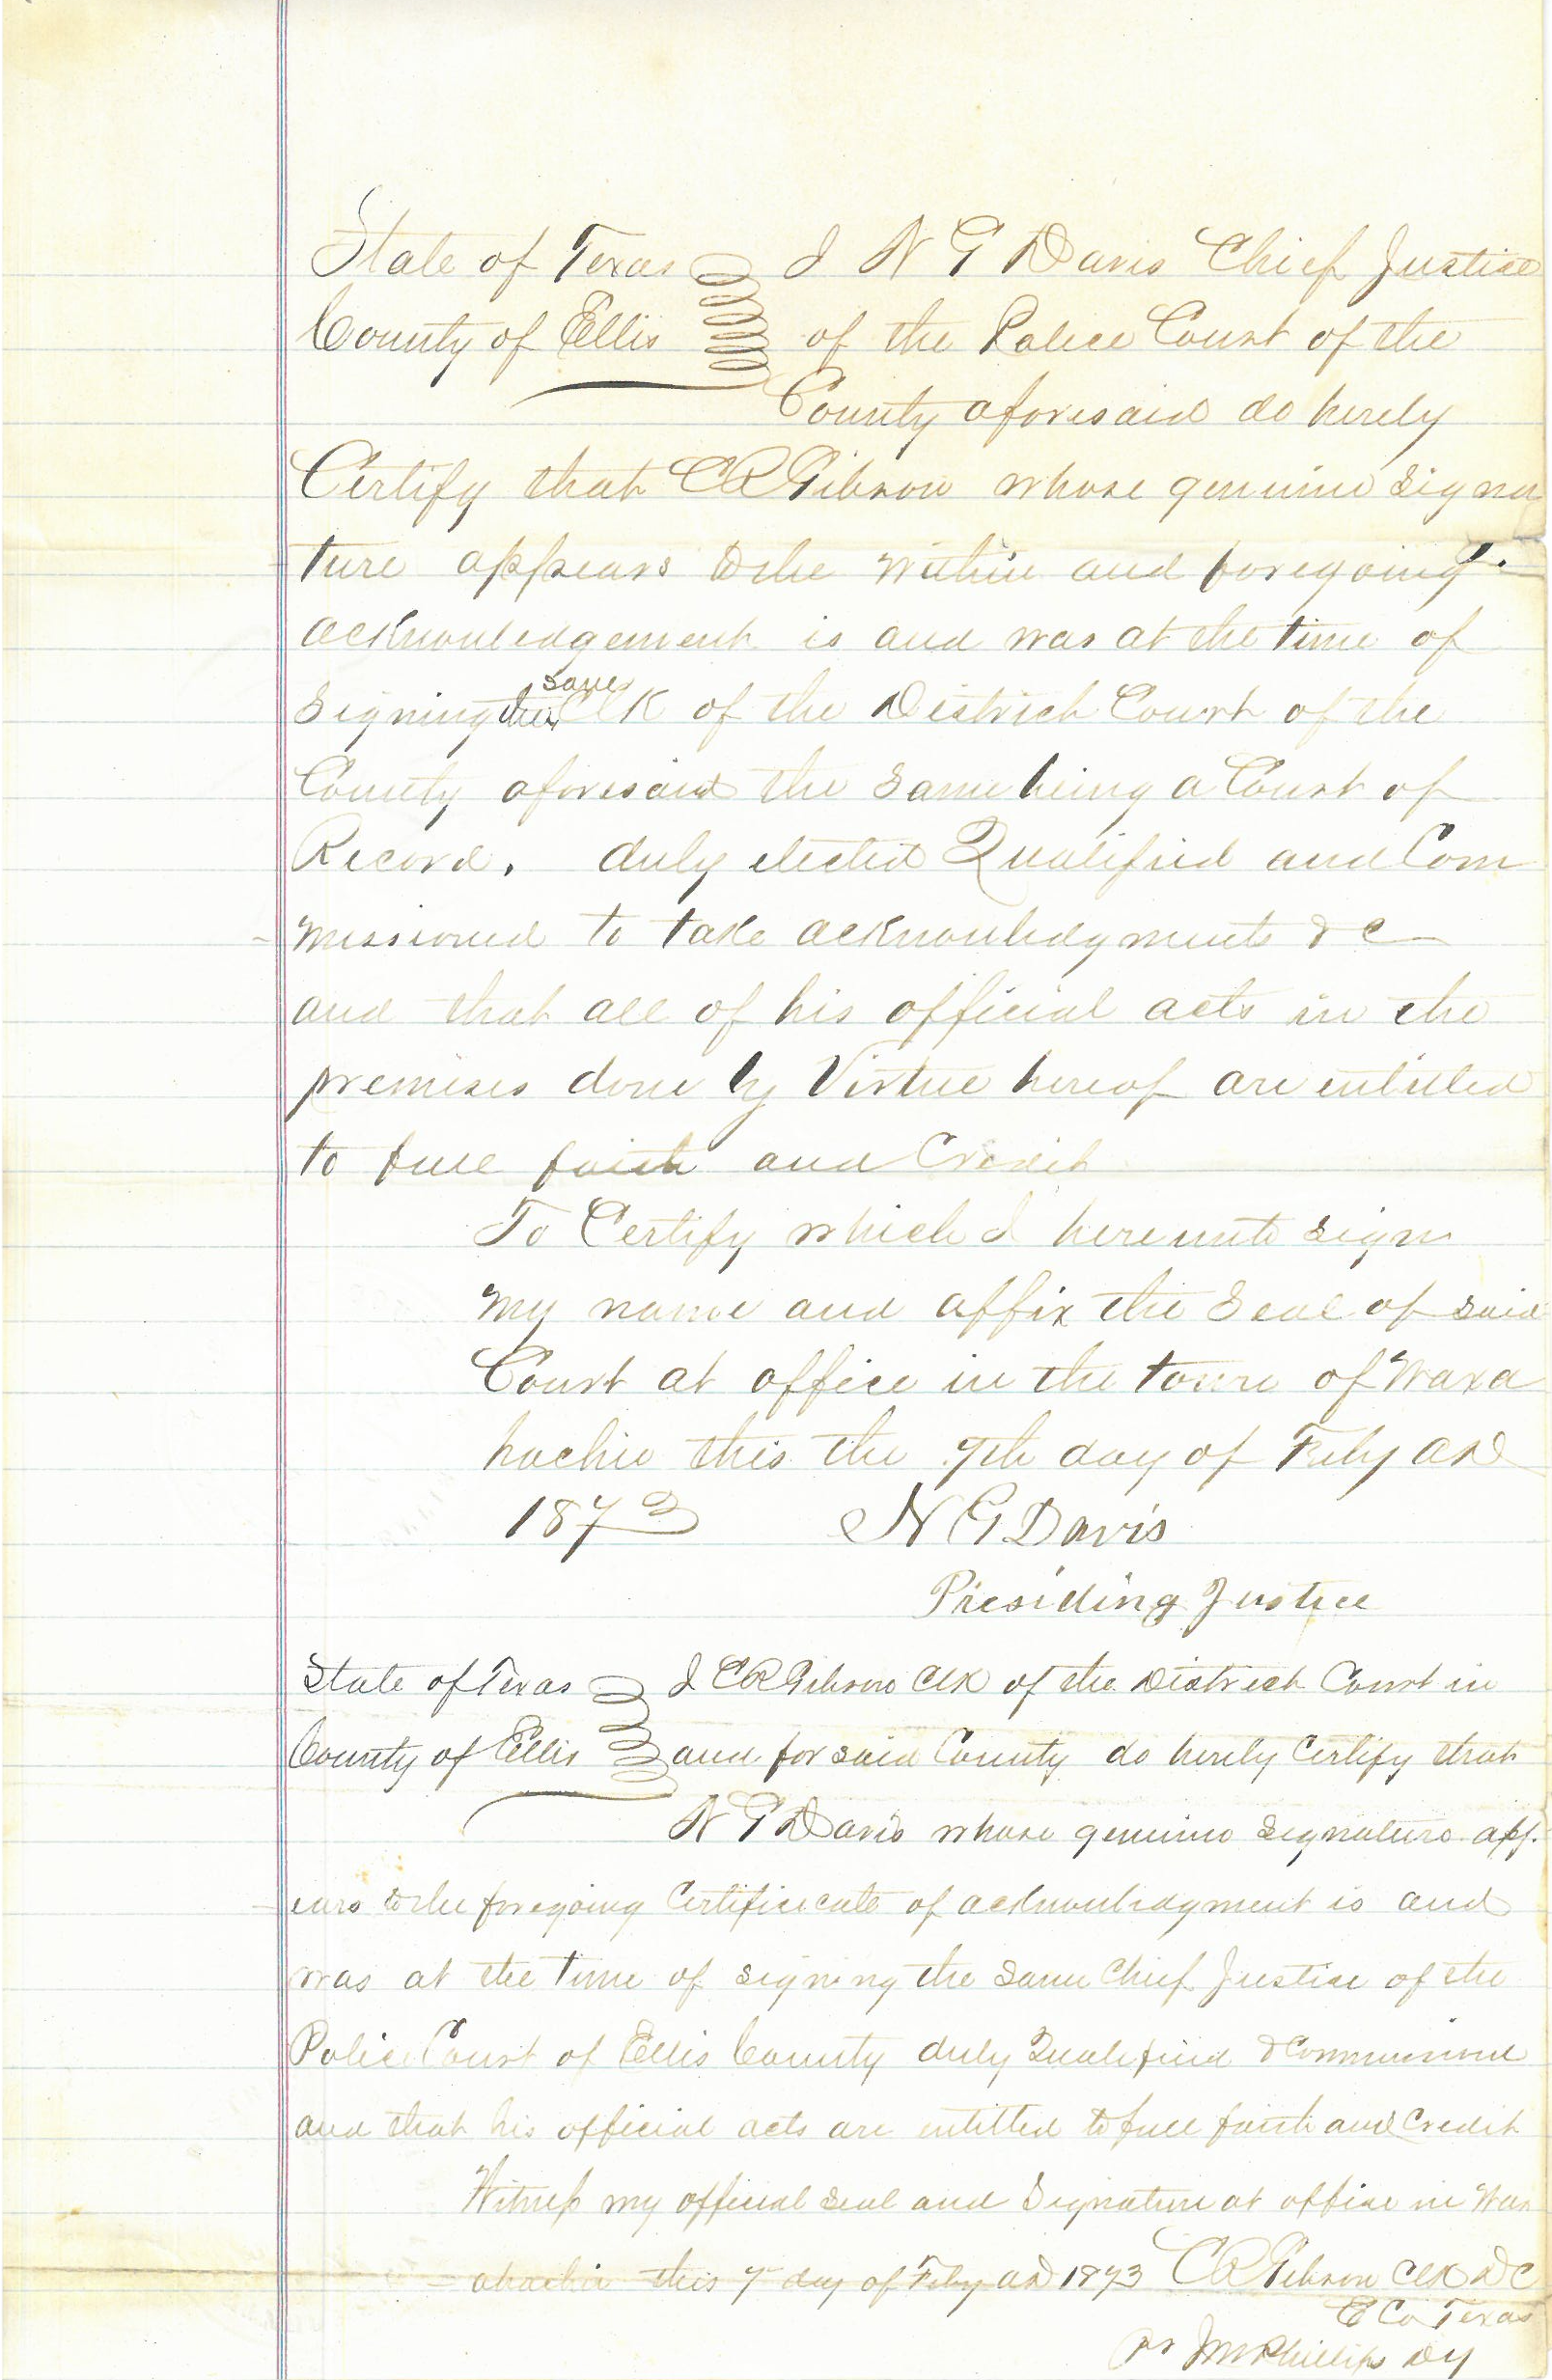 State of Texas I N G Davis Chief Justice
County of Ellis of the Police Court of the
County aforesaid do herely
Certify that C R Gibson whose genuine signa
ture appears to the within and foregoing.
acknowledgement is and was at the time of
signing the same Clk of the District Court of the
County aforesaid the same being a Court of
Record. duly elected Qualified and Com
missioned to take acknowledgments &c
and that all of his official acts in the
premises done by Virtue hereof are entitled
to full faith and Credit
To Certify which I hereunto sign
my name and affix the Seal of said
Court at office in the town of Waxa
hachie this the 7th day of Feby AD
1873 N G Davis
Presiding Justice
State of Texas I C R Gibson Clk of the District Court in
County of Ellis and for said County do herely Certify that
N G Davis whose genuine signature app.
ears to the foregoing Certificicate of acknowledgment is and
was at the time of signing the same Chief Justice of the
Police Court of Ellis County duly Qualified &
and that his official acts are entitled to full faith and Credit
Witness my official seal and Signature at office in Wax
ahachie this 7 day of Feby AD 1873 C R Gibson Clk D C
E Co Texas
Pr J M Phillips Dy